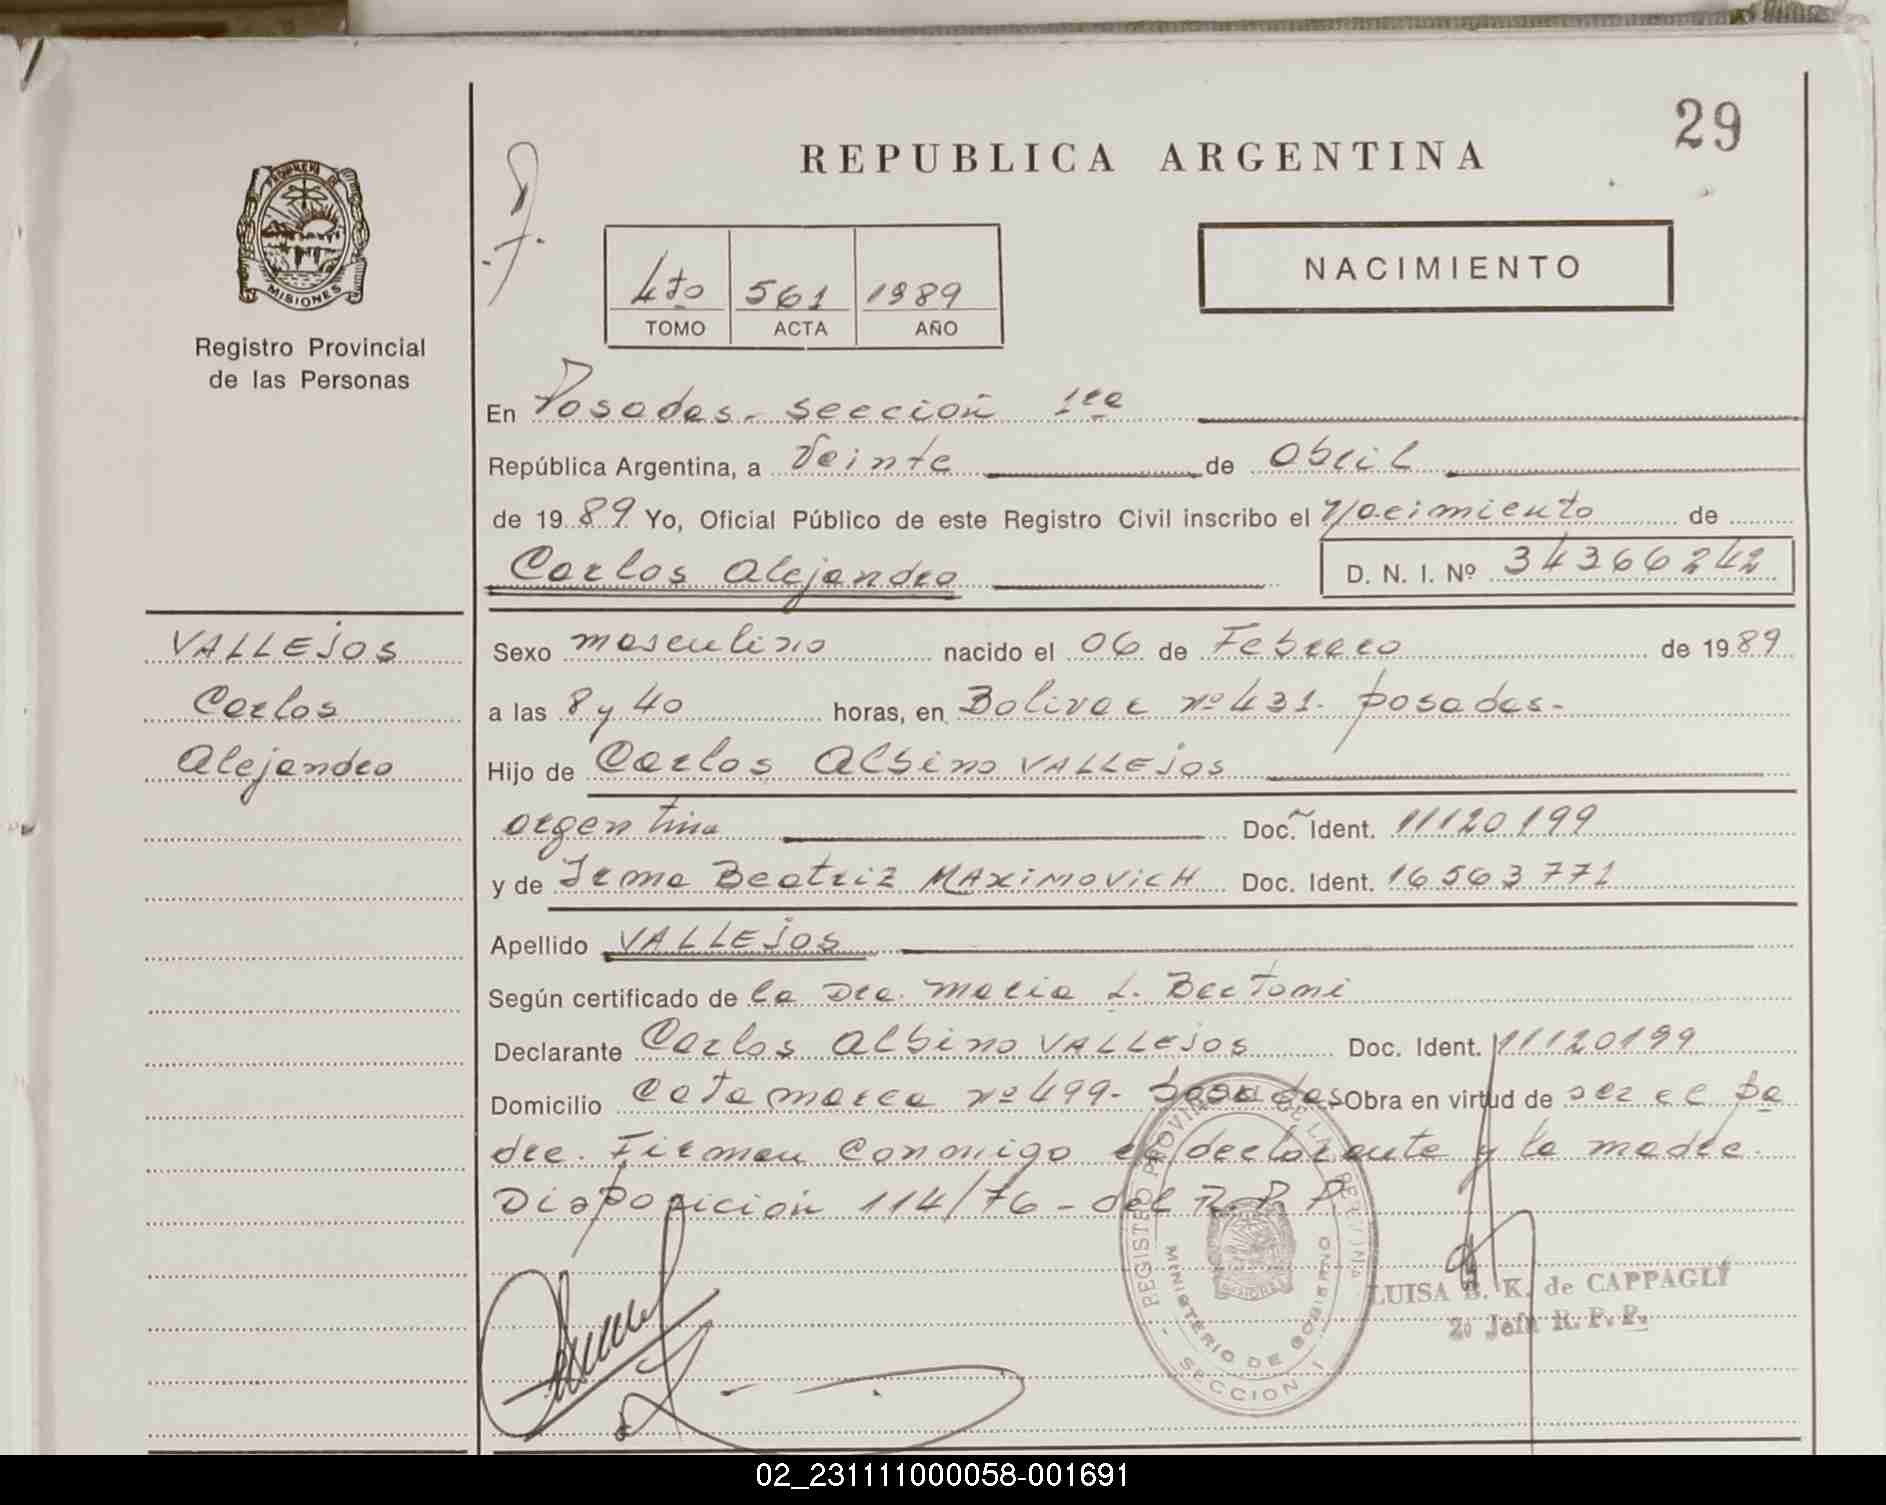 29
REPUBLICA ARGENTINA
PROVINCIA DE
MISIONES
Registro Provincial
de las Personas
4to 561 1989
TOMO ACTA AÑO
NACIMIENTO
En Posadas - sección 1ra
República Argentina, a Veinte de Abril
de 1989 Yo, Oficial Público de este Registro Civil inscribo el Nacimiento de
Carlos Alejandro D. N. I. Nº 34366242
VALLEJOS
Carlos
Alejandro
Sexo masculino nacido el 06 de Febrero de 1989
a las 8 y 40 horas, en Bolivar nº 431. posadas-
Hijo de Carlos Albino VALLEJOS
argentina Doc. Ident. 11120199
y de Irma Beatriz MAXIMOVICH Doc. Ident. 16563771
Apellido VALLEJOS
Según certificado de la Dra. Maria L. Bertoni
Declarante Carlos Albino VALLEJOS Doc. Ident. 11120199
Domicilio Catamarca nº 499- posadas Obra en virtud de ser el pa
dre. Firman conmigo el declarante y la madre.
Disposición 114/76 - del R. P. P.
REGISTRO PROVINCIAL DE LAS PERSONAS
MINISTERIO DE GOBIERNO
- SECCION I -
LUISA B. K. de CAPPAGLI
2º Jefa R. P. P.
02_231111000058-001691